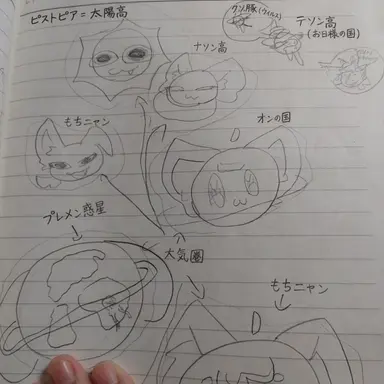 ピストピア=太陽高
クソ豚(ウイルス)
テソン高
(お日様の国)
ナソン高
もちニャン
オンの国
プレメン惑星
大気圏
もちニャン